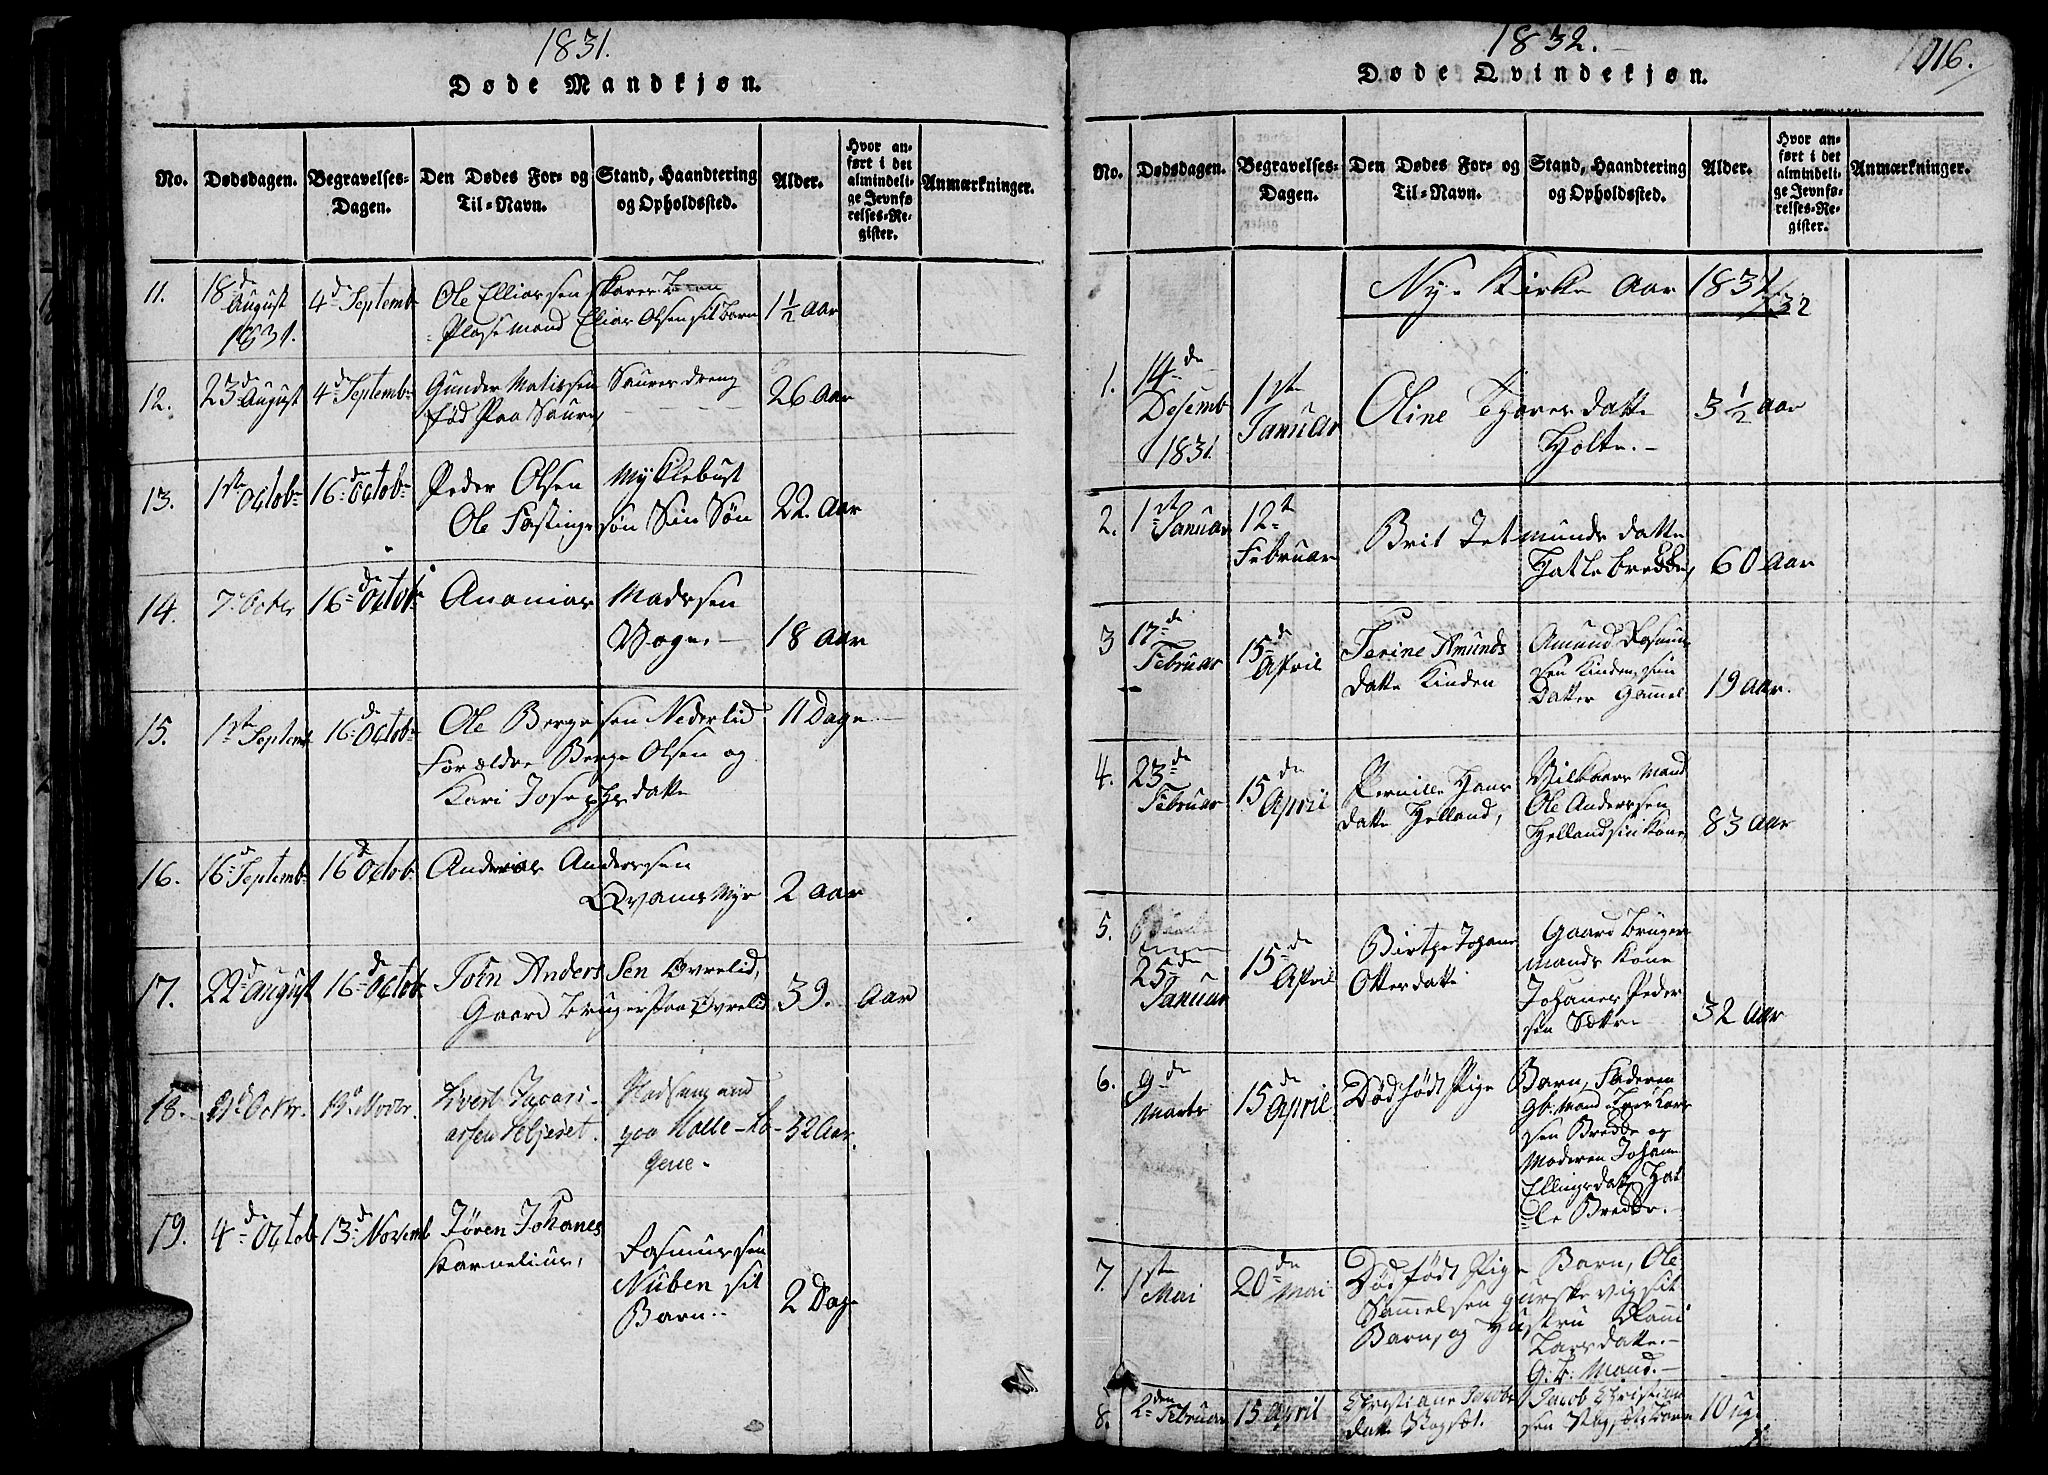 1831.
Døde Mandkjøn.
No.
Dødsdagen.
Begravelses-
Dagen.
Den Dødes For- og
Til-Navn.
Stand, Haandtering
og Opholdssted.
Alder.
Hvor an-
ført i det
almindeli-
ge Jevnfø-
relses-Re-
gister.
Anmærkninger.
11.
18de
August
1831.
4de Septemb
Ole Elliassen
Plasemand Elias Olsen sit Barn
1½ Aar
12.
23de August
4de Septemb
Gunder Matissen Saures dreng
fød Paa Saure
26 Aar
13.
1ste Octob
16de Octob
Peder Olsen Myklebust
Ole Fastingsøn Sin Søn
22. Aar
14.
7de Octbr
16de Octob
Ananias Madssen
Vogn.
18 Aar
15.
1ste Septemb
16de Octob
Ole Bergesen Nederlid
Forældre Berge Olsen og
Kari Josephsdatte
11 Dage
16.
16de Septemb
16de Octob
Andreas Anderssen
Qvams Myr
2 Aar
17.
22de August
16de Octob
John Anderssen Øvrelid,
Gaard Bruger paa Øvrelid
39. Aar
18.
21de Octbr.
13de Novbr.
32 Aar.
19.
4de Octob
13de Novemb
Jøren Johanes
Karnelius,
Rasmussen
Nuben sit
Barn.
2 Dage
1832.
1016.
Døde Qvindekjøn.
No.
Dødsdagen.
Begravelses-
Dagen.
Den Dødes For- og
Til-Navn.
Stand, Haandtering
og Opholdssted.
Alder.
Hvor an-
ført i det
almindeli-
ge Jevnfø-
relses-Re-
gister.
Anmærkninger.
Nye Kirke Aar 1831/32
1.
14de
Desemb
1831.
1ste
Januar
Oline Thoresdatte
Holte.
3½ Aar
2.
1ste Januar
12te
Februar
Brit Jetmundsdatte
Hatlebredde,
60 Aar
3
17de
Februar
15de
April
Serine Amunds
datte Kinden
Amund Rasmus
sen Kinden, sin
Datter Gammel
19 Aar.
4.
23de
Februar
15de
April
Pernille Hans
datte Helland,
Vilkaars Mand
Ole Anderssen
Helland sin Kone
83 Aar
5.
25de
Januar
15de
April
Birthe Johane
Ottersdatte
Gaard Bruger
Mands Kone
Johanes Peder
sen Sætre
32 Aar
6.
9de
Marts
15de
April
Dødfødt Pige Barn, Faderen
Gb. Mand Iver Lars
sen Bredde og
Moderen Johane
Ellingsdatte Hat
le Bredde.
7.
1ste
Mai
20de
Mai
Dødfødt Pige Barn, Ole
Sammelsen Gurskevig sit
Barn, og Hustru
Larsdatte.
G. B. Mand.
8.
2den
Februar
15 April
Christiane Jacobs
datte Vagsæt.
Jacob Christian
sen
10 Ug